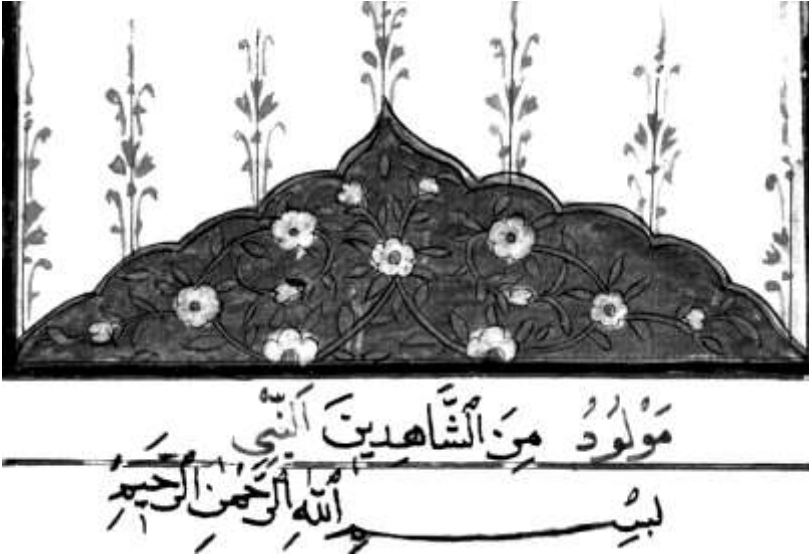 مَوْلُودُ مِنَ ٱلشَّاهِدِينَ اَلنَّبِيِّ
بِسْمِ ٱللّٰهِ ٱلرَّحْمٰنِ ٱلرَّحِيمِ